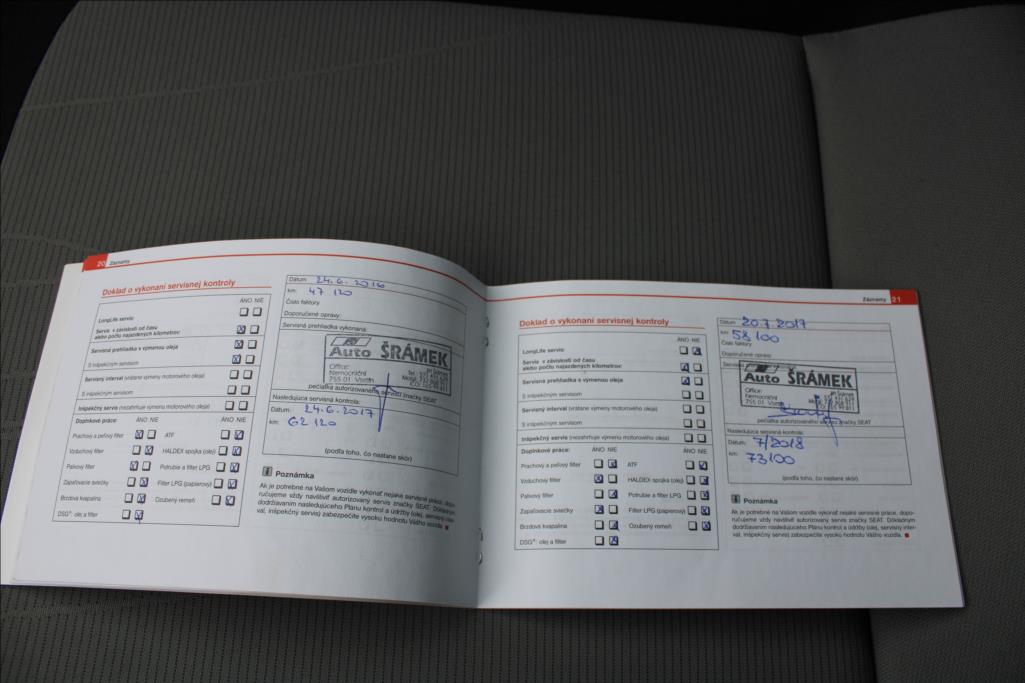 20 Záznamy
Doklad o vykonaní servisnej kontroly
ÁNO NIE
LongLife servis:
Servis v závislosti od času
alebo počtu najazdených kilometrov:
Servisná prehliadka s výmenou oleja
S inšpekčným servisom
Servisný interval (vrátane výmeny motorového oleja)
S inšpekčným servisom
Inšpekčný servis (nezahrňuje výmenu motorového oleja)
Doplnkové práce: ÁNO NIE ÁNO NIE
Prachový a peľový filter ATF
Vzduchový filter HALDEX spojka (olej)
Palivový filter Potrubie a filter LPG
Zapaľovacie sviečky Filter LPG (papierový)
Brzdová kvapalina Ozubený remeň
DSG®: olej a filter
Dátum 24.6.2016
km: 47 120
Číslo faktúry
Doporučené opravy:
Servisná prehliadka vykonaná:
Auto ŠRÁMEK
Office:
Nemocniční
755 01 Vsetín
pečiatka autorizovaného servisu značky SEAT
Nasledujúca servisná kontrola:
Dátum: 24.6.2017
km: 62 120
(podľa toho, čo nastane skôr)
Poznámka
Ak je potrebné na Vašom vozidle vykonať nejaké servisné práce, dopo-
ručujeme vždy navštíviť autorizovaný servis značky SEAT. Dôkladným
dodržiavaním nasledujúceho Plánu kontrol a údržby (olej, servisný inter-
val, inšpekčný servis) zabezpečíte vysokú hodnotu Vášho vozidla.
Záznamy 21
Doklad o vykonaní servisnej kontroly
ÁNO NIE
LongLife servis:
Servis v závislosti od času
alebo počtu najazdených kilometrov:
Servisná prehliadka s výmenou oleja
S inšpekčným servisom
Servisný interval (vrátane výmeny motorového oleja)
S inšpekčným servisom
Inšpekčný servis (nezahrňuje výmenu motorového oleja)
Doplnkové práce: ÁNO NIE ÁNO NIE
Prachový a peľový filter ATF
Vzduchový filter HALDEX spojka (olej)
Palivový filter Potrubie a filter LPG
Zapaľovacie sviečky Filter LPG (papierový)
Brzdová kvapalina Ozubený remeň
DSG®: olej a filter
Dátum 20.7.2017
km: 58100
Číslo faktúry
Doporučené opravy:
Auto ŠRÁMEK
Office:
Nemocniční
755 01 Vsetín
pečiatka autorizovaného servisu značky SEAT
Nasledujúca servisná kontrola:
Dátum: 7/2018
km: 73100
(podľa toho, čo nastane skôr)
Poznámka
Ak je potrebné na Vašom vozidle vykonať nejaké servisné práce, dopo-
ručujeme vždy navštíviť autorizovaný servis značky SEAT. Dôkladným
dodržiavaním nasledujúceho Plánu kontrol a údržby (olej, servisný inter-
val, inšpekčný servis) zabezpečíte vysokú hodnotu Vášho vozidla.